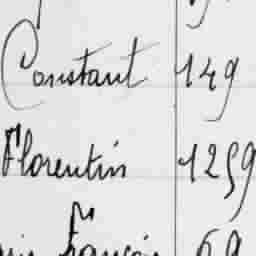 Constant 149
Florentin 1259
François 69